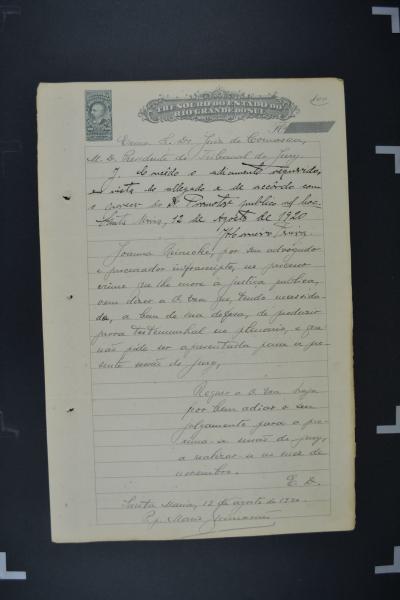 THESOURO DO ESTADO DO
RIO GRANDE DO SUL
Exmo. Sr. Dr. Juiz de Comarca,
M. D. Presidente do Tribunal do Jury.
J. Concedo o adiamento requerido,
em vista do allegado e de accôrdo com
o parecer do Dr. Promotor publico
Santa Maria, 12 de Agosto de 1920
Joanna, por seu advogado
e procurador infrascripto, no processo
crime que lhe move a justiça publica,
vem dizer a V. Exa que, tendo necessida-
de, a bem de sua defesa, de produzir
prova testemunhal no plenario, e que
não póde ser apresentada para a pre-
sente sessão do jury,
Rogar a V. Exa haja
por bem adiar o seu
julgamento para a pro-
xima sessão do jury,
a realizar-se no mez de
novembro.
E. D.
Santa Maria, 12 de agosto de 1920.
P.p.